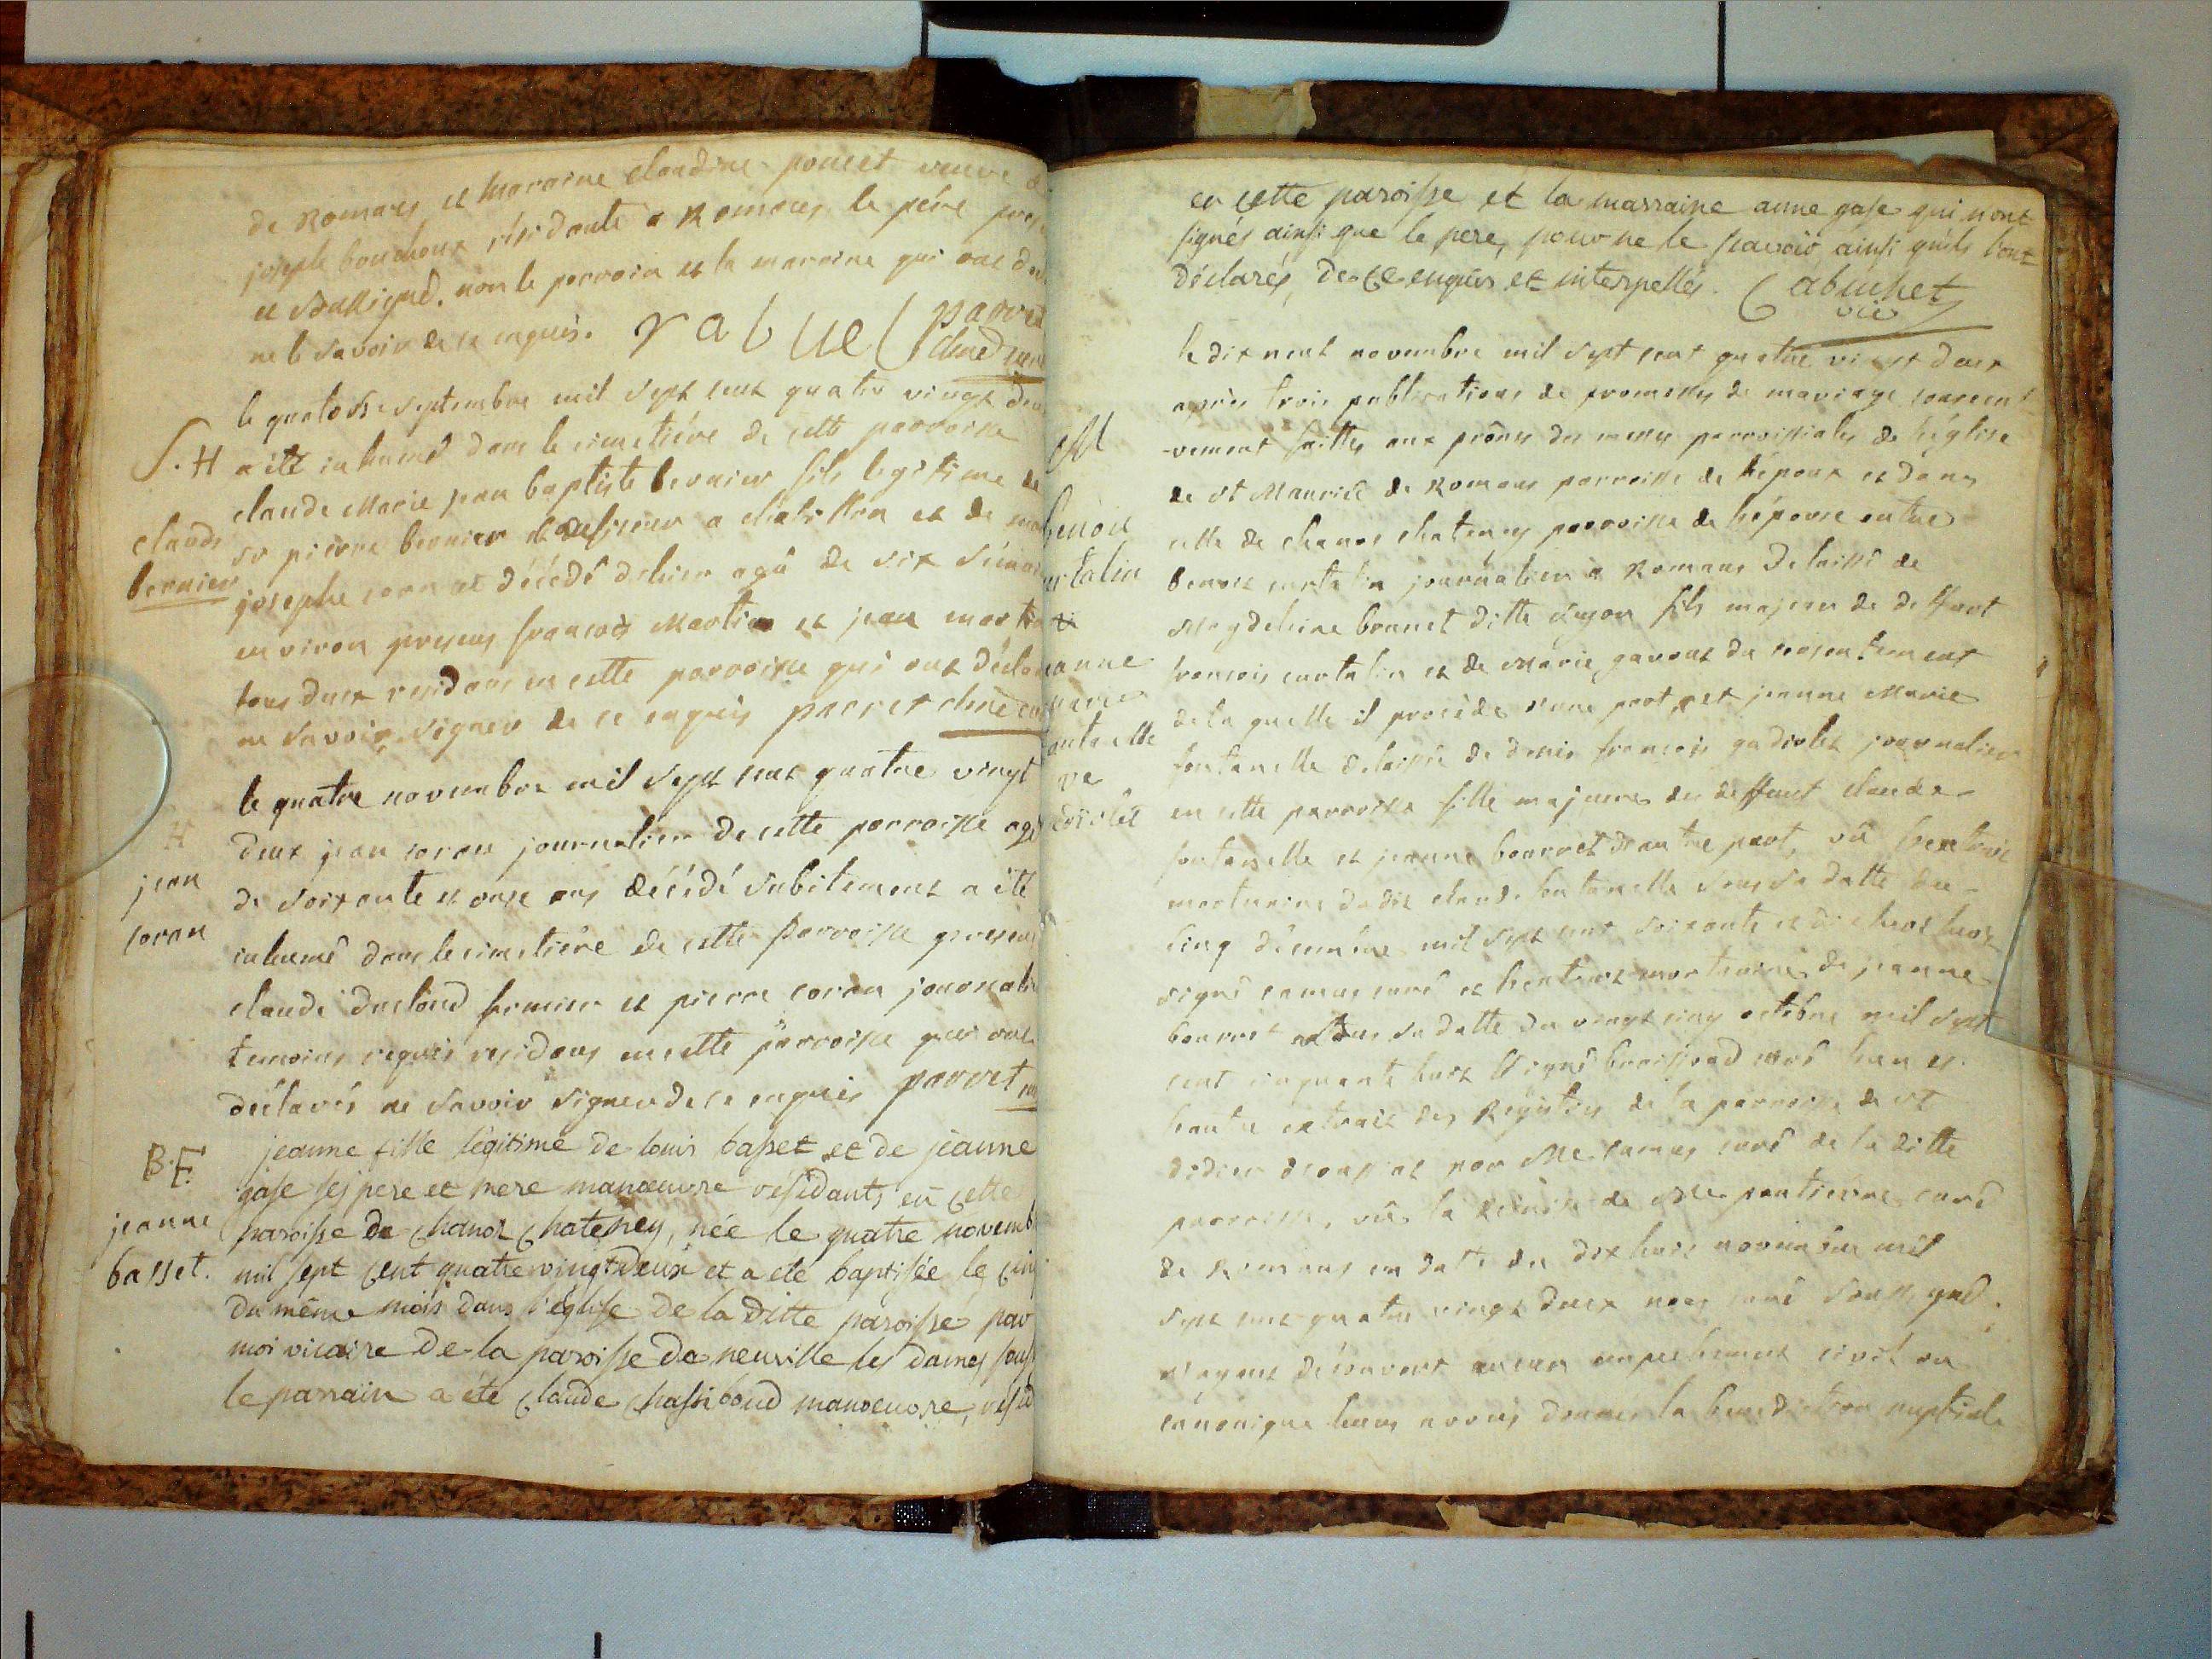 de Romans et maraine claudine poncet veuve de
joseph bouchoux résidante a Romans, le père pres
et soussigné. non le parrain et la maraine qui ont de
ne le savoir de ce enquis. rabuel parret
curé
le quatorse septembre mil sept cent quatre vingt deux
S. H a été inhumé dans le cimetière de cette parroisse
claude Marie jean baptiste bernier fils legitime de
claude
bernier
sr pierre bernier a chatillon et de
josephe décédé d'hier agé de six semaines
environ presens françois Martin et jean martin
tous deux residans en cette parroisse qui ont déclaré
ne savoir signer de ce enquis parret curé
le quatre novembre mil sept cent quatre vingt
H
jean
coran
deux jean coran journalier de cette parroisse agé
de soixante et onse ans décédé subitement a été
inhumé dans le cimetière de cette parroisse presens
claude ducloud fermier et pierre coran journalier
temoins requis residans en cette parroisse qui ont
déclarés ne savoir signer de ce enquis parret
B. F.
jeanne
basset.
jeanne fille légitime de louis basset et de jeanne
gase ses pere et mere manœuvre résidants en cette
paroisse de chanoz chateney, née le quatre novemb
mil sept cent quatre vingt deux et a été baptisée le cinq
du même mois dans l'église de la ditte paroisse par
moi vicaire de la paroisse de neuville les dames sous
le parrain a été claude chassiboud manœuvre, resid
en cette paroisse et la marraine anne gase qui n'ont
signés ainsi que le pere, pour ne le scavoir ainsi qu'ils l'ont
déclarés, de ce enquis et interpellés. Cabuchet
vic
M
benoit
curtalin
et
jeanne
marie
fontanelle
ve
gadiolet
le dix neuf novembre mil sept cent quatre vingt deux
après trois publications de promesses de mariage consecuti
-vement faittes aux prônes des messes parroissiales de l'église
de st Maurice de Romans parroisse de l'époux et dans
celle de chanos chateney parroisse de l'épouse entre
benoit curtalin journalier a Romans delaissé de
Magdelaine brunet ditte fils majeur de deffunt
françois curtalin et de Marie gavent du consentement
de laquelle il procède d'une part, et jeanne Marie
fontanelle delaissée de denis françois gadiolet journalier
en cette parroisse fille majeure de deffunt claude
fontanelle et jeanne bourret d'autre part, vû l'extrait
mortuaire dudit claude fontanelle sous sa datte du
cinq décembre mil sept cent soixante et dix huit
signé camus curé et l'extrait mortuaire de jeanne
bourret sous sa datte du vingt cinq octobre mil sept
cent cinquante huit signé curé l'un et
l'autre extrait des Registres de la parroisse de st
didier par Me camus curé de la ditte
parroisse, vû la Remise de Me curé
de Romans en date du dix huit novembre mil
sept cent quatre vingt deux nous curé soussigné
n'ayant découvert aucun empechement civil ou
canonique leurs avons donnés la benediction nuptiale